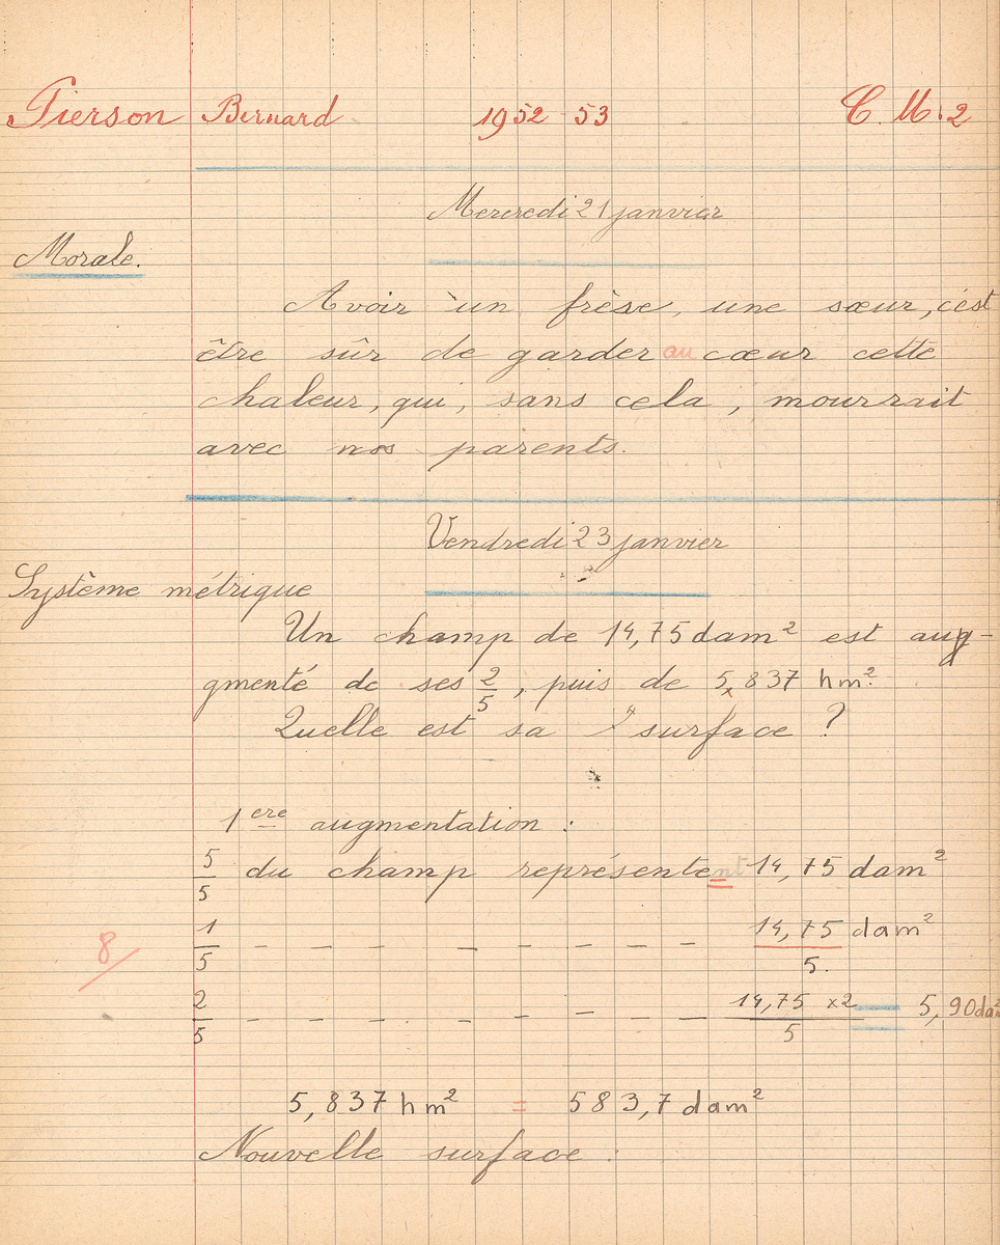 Pierson Bernard 1952-53 C.M.2
Mercredi 21 janvier
Morale.
Avoir un frère, une sœur, c'est
être sûr de garder au cœur cette
chaleur, qui, sans cela, mourrait
avec nos parents.
Vendredi 23 janvier
Système métrique
Un champ de 14,75 dam² est aug-
gmenté de ses 2/5, puis de 5,837 hm².
Quelle est sa surface ?
1ere augmentation :
5/5 du champ représentent 14,75 dam²
1/5 – – – – – – – – 14,75 dam² / 5.
8
2/5 – – – – – – – – – 14,75 x2 / 5 = 5,90 dam²
5,837 hm² = 583,7 dam²
Nouvelle surface :